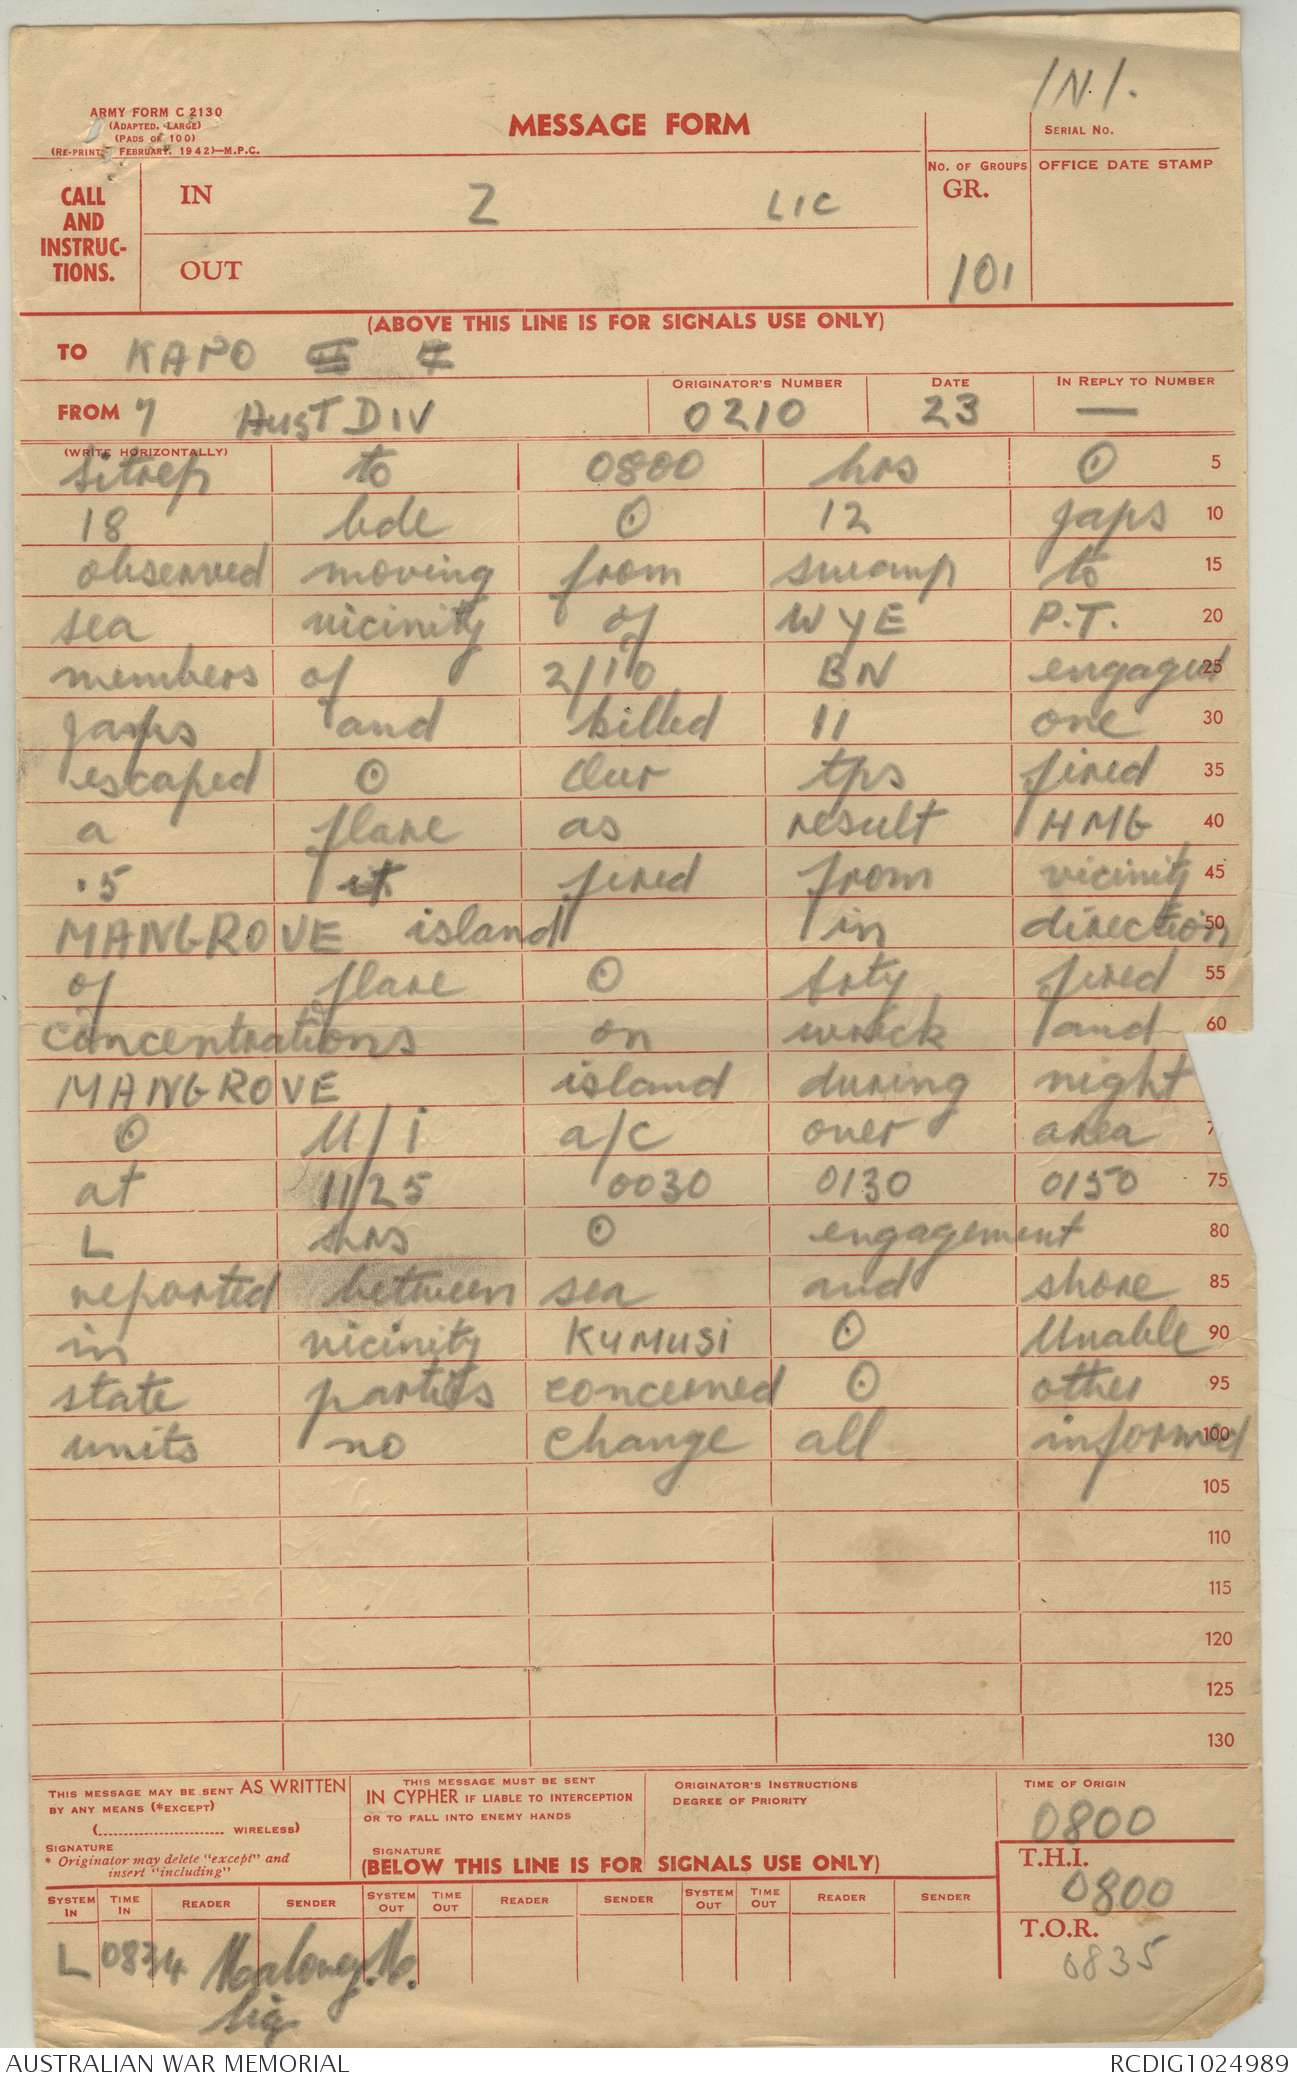 ARMY FORM C 2130
(ADAPTED, LARGE)
(PADS OF 100)
(RE-PRINT, FEBRUARY, 1942)—M.P.C.
MESSAGE FORM
/N/.
SERIAL No.
CALL AND INSTRUC-TIONS.
IN Z LIC
OUT
No. OF GROUPS
GR.
101
OFFICE DATE STAMP
(ABOVE THIS LINE IS FOR SIGNALS USE ONLY)
TO KAPO
FROM 7 AUST DIV
ORIGINATOR'S NUMBER
0210
DATE
23
IN REPLY TO NUMBER
—
(WRITE HORIZONTALLY)
Sitrep to 0800 hrs ⊙ 5
18 bde ⊙ 12 japs 10
observed moving from swamp to 15
sea vicinity of WYE P.T. 20
members of 2/10 BN engaged 25
japs and killed 11 one 30
escaped ⊙ Our tps fired 35
a flare as result HMG 40
.5 fired from vicinity 45
MANGROVE island in direction 50
of flare ⊙ Arty fired 55
concentrations on wreck and 60
MANGROVE island during night
⊙ U/i a/c over area
at 1125 0030 0130 0150 75
L hrs ⊙ engagement 80
reported between sea and shore 85
in vicinity KUMUSI ⊙ Unable 90
state parties concerned ⊙ other 95
units no change all informed 100
105
110
115
120
125
130
THIS MESSAGE MAY BE SENT AS WRITTEN
BY ANY MEANS (*EXCEPT)
(........................ WIRELESS)
SIGNATURE
* Originator may delete "except" and
insert "including"
THIS MESSAGE MUST BE SENT
IN CYPHER IF LIABLE TO INTERCEPTION
OR TO FALL INTO ENEMY HANDS
SIGNATURE
ORIGINATOR'S INSTRUCTIONS
DEGREE OF PRIORITY
TIME OF ORIGIN
0800
(BELOW THIS LINE IS FOR SIGNALS USE ONLY)
T.H.I.
0800
T.O.R.
0835
SYSTEM IN TIME IN READER SENDER SYSTEM OUT TIME OUT READER SENDER SYSTEM OUT TIME OUT READER SENDER
L 0834 Maloney.
Sig
AUSTRALIAN WAR MEMORIAL
RCDIG1024989